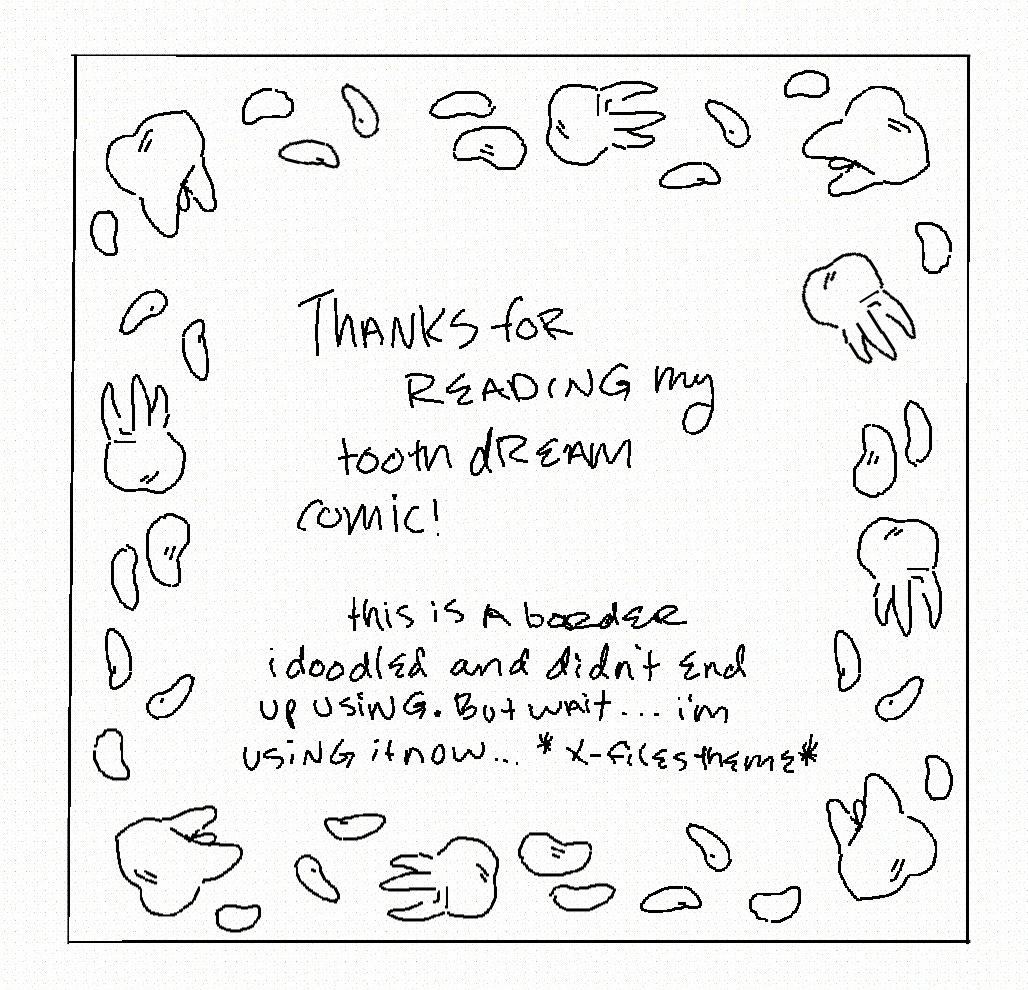 THANKS foR
READING my
tooth dREAM
comic!
this is A boRdER
i doodlEd and didn't End
up usiNG. But wait... i'm
usiNG it now... * X-filEs thEmE*